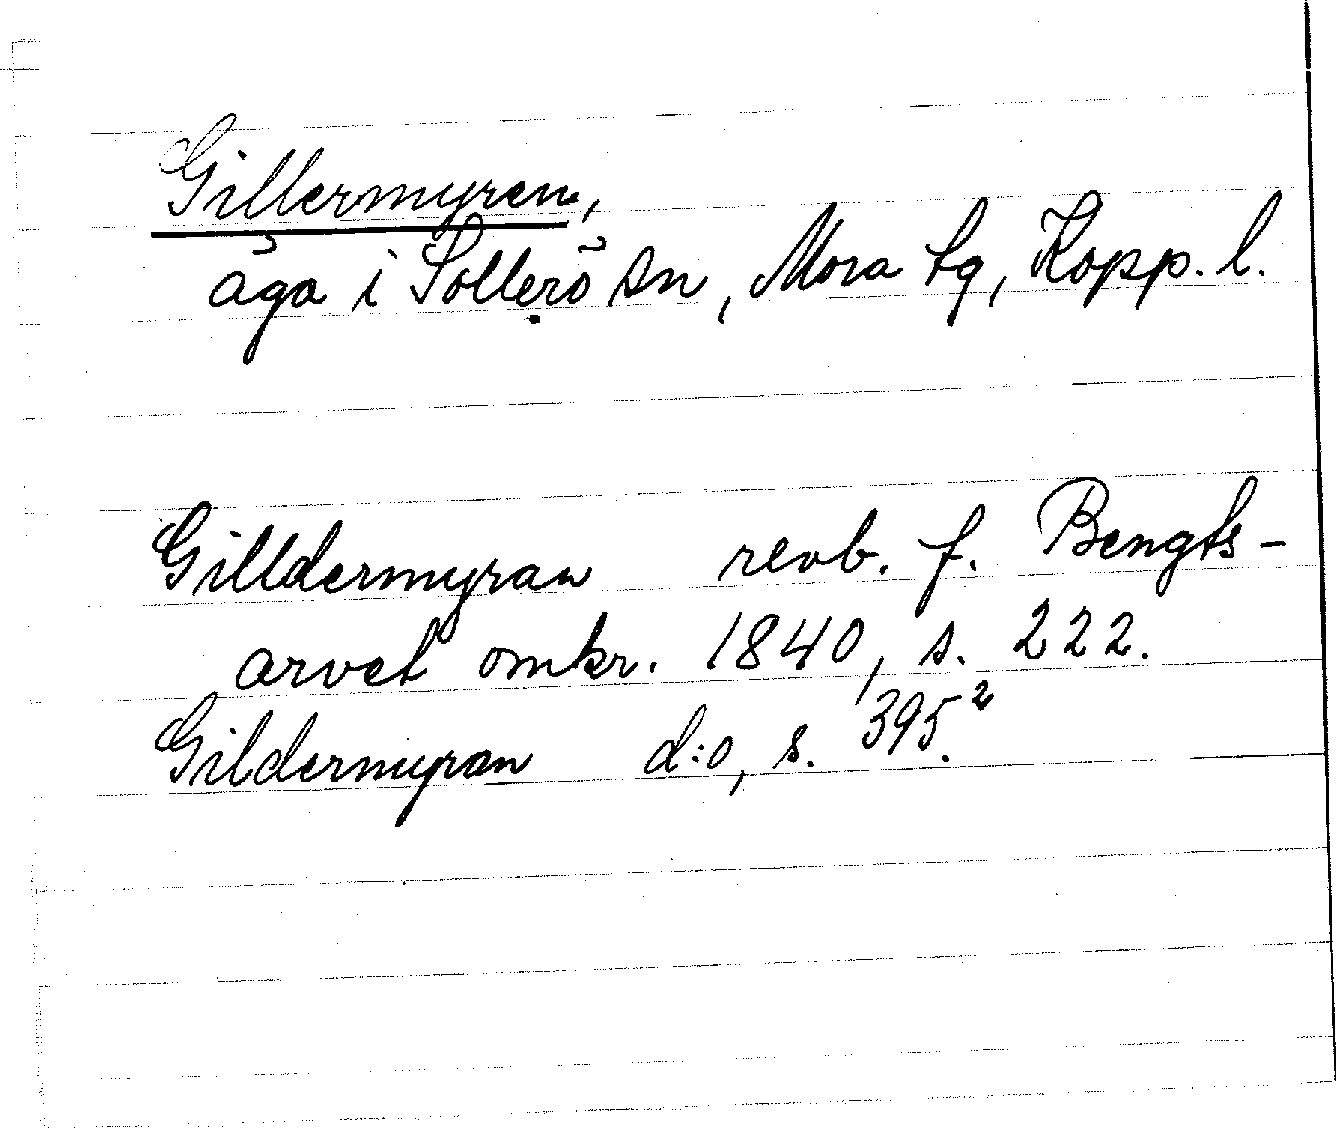 Gillermyren,
äga i Sollerö sn, Mora tg, Kopp. l.
Gilldermyran revb. f. Bengts-
arvet omkr. 1840, s. 222.
Gildermyran d:o, s. 395.²